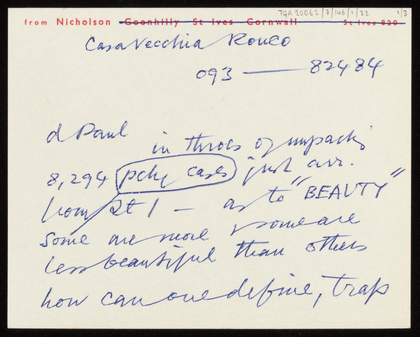 TGA 20062/2/146/1/22 1/2
from Nicholson Goonhilly St Ives Cornwall St Ives 830
Casa Vecchia Ronco
093 — 82484
d Paul
in throes of unpacking
8,294 pckg cases just arr.
from St I — as to "BEAUTY"
Some are more & some are
less beautiful than others
how can one define, trap